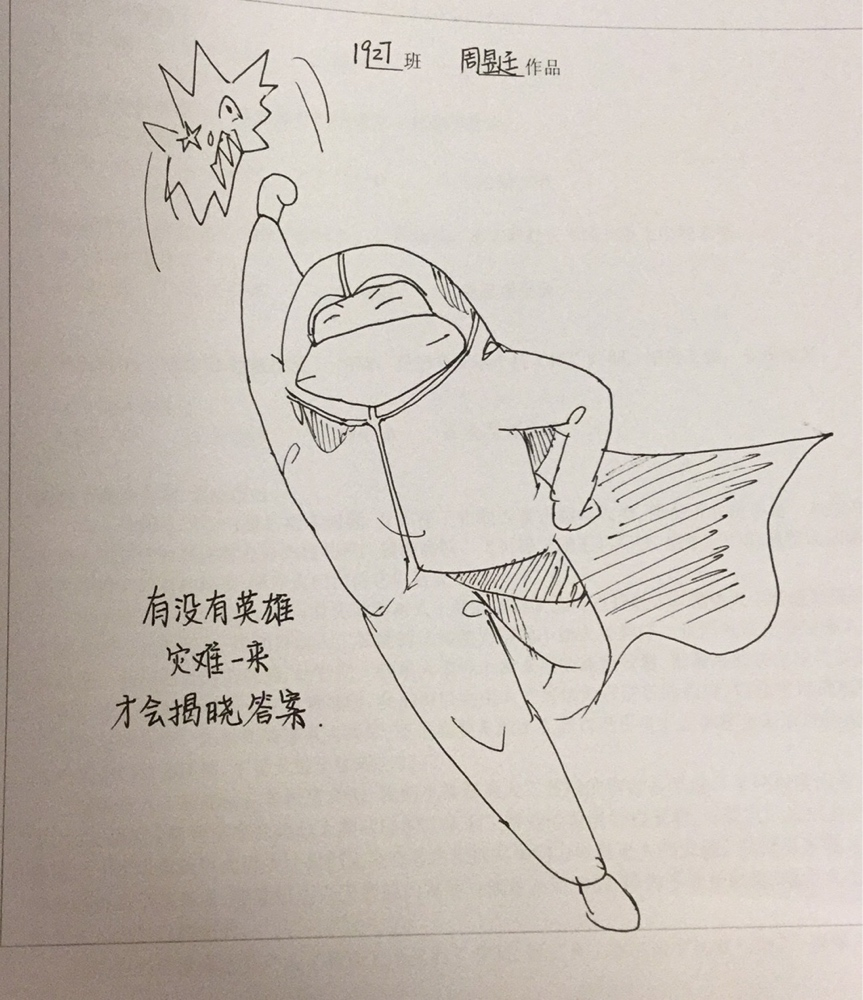 1927班 周昱廷作品
有没有英雄
灾难一来
才会揭晓答案.